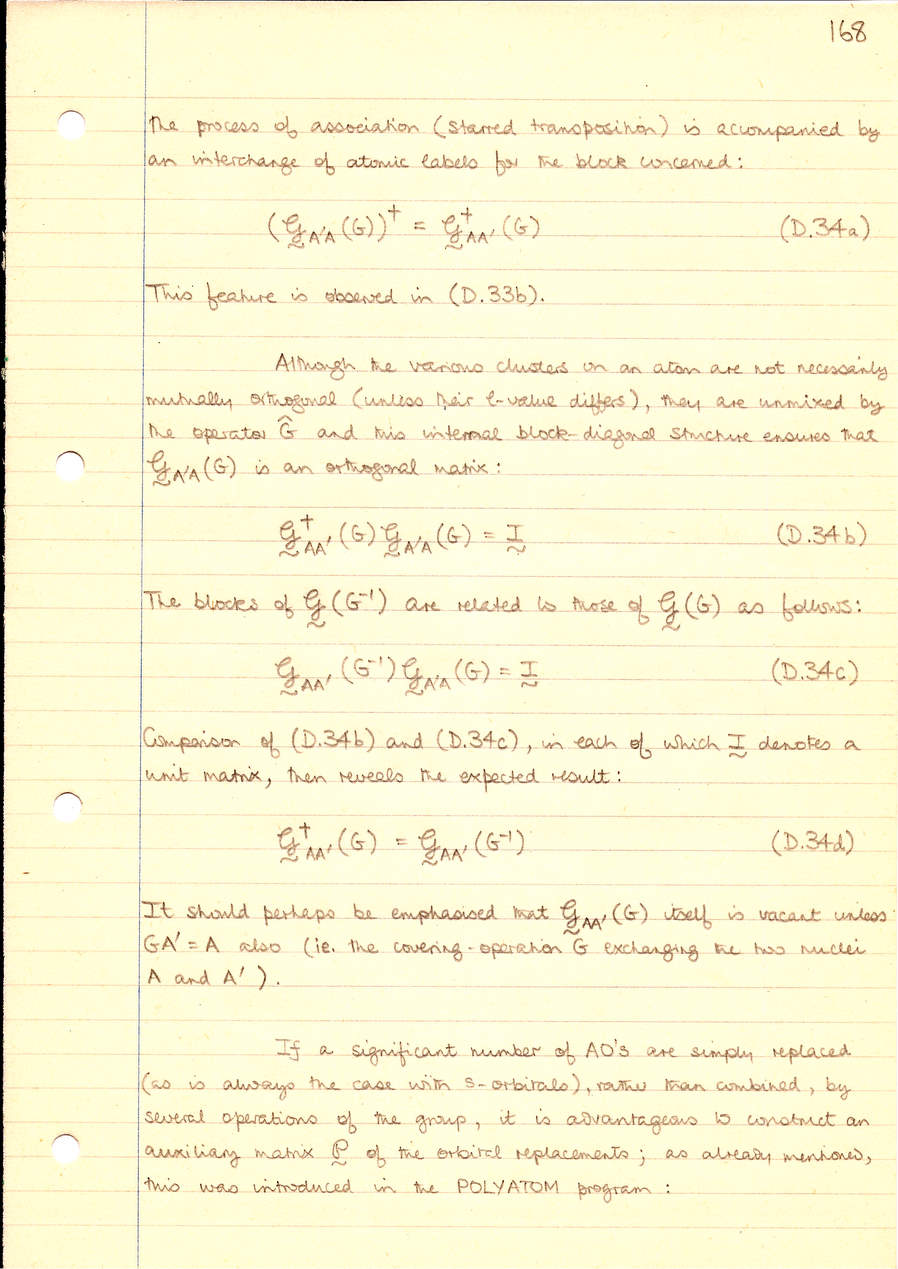 168
The process of association (starred transposition) is accompanied by
an interchange of atomic labels for the block concerned:
(𝒢A′A(G))† = 𝒢†AA′(G) (D.34a)
This feature is observed in (D.33b).
Although the various clusters on an atom are not necessarily
mutually orthogonal (unless their l-value differs), they are unmixed by
the operator Ĝ and this internal block-diagonal structure ensures that
𝒢A′A(G) is an orthogonal matrix:
𝒢†AA′(G) 𝒢A′A(G) = I (D.34b)
The blocks of 𝒢(G⁻¹) are related to those of 𝒢(G) as follows:
𝒢AA′(G⁻¹) 𝒢A′A(G) = I (D.34c)
Comparison of (D.34b) and (D.34c), in each of which I denotes a
unit matrix, then reveals the expected result:
𝒢†AA′(G) = 𝒢AA′(G⁻¹) (D.34d)
It should perhaps be emphasised that 𝒢AA′(G) itself is vacant unless
GA′ = A also (ie. the covering-operation G exchanging the two nuclei
A and A′).
If a significant number of AO's are simply replaced
(as is always the case with s-orbitals), rather than combined, by
several operations of the group, it is advantageous to construct an
auxiliary matrix P of the orbital replacements; as already mentioned,
this was introduced in the POLYATOM program: